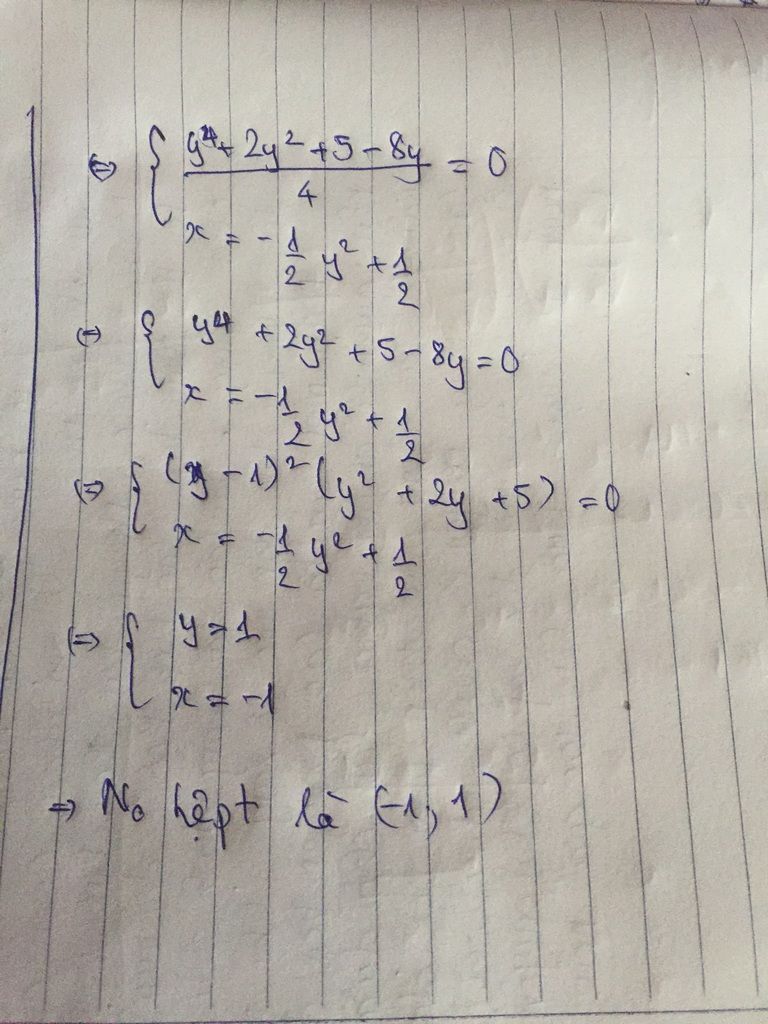 ⇔ { (y⁴ + 2y² + 5 - 8y)/4 = 0
x = - 1/2 y² + 1/2
⇔ { y⁴ + 2y² + 5 - 8y = 0
x = - 1/2 y² + 1/2
⇔ { (y - 1)² (y² + 2y + 5) = 0
x = - 1/2 y² + 1/2
⇔ { y = 1
x = -1
⇒ No hệpt là (-1, 1)